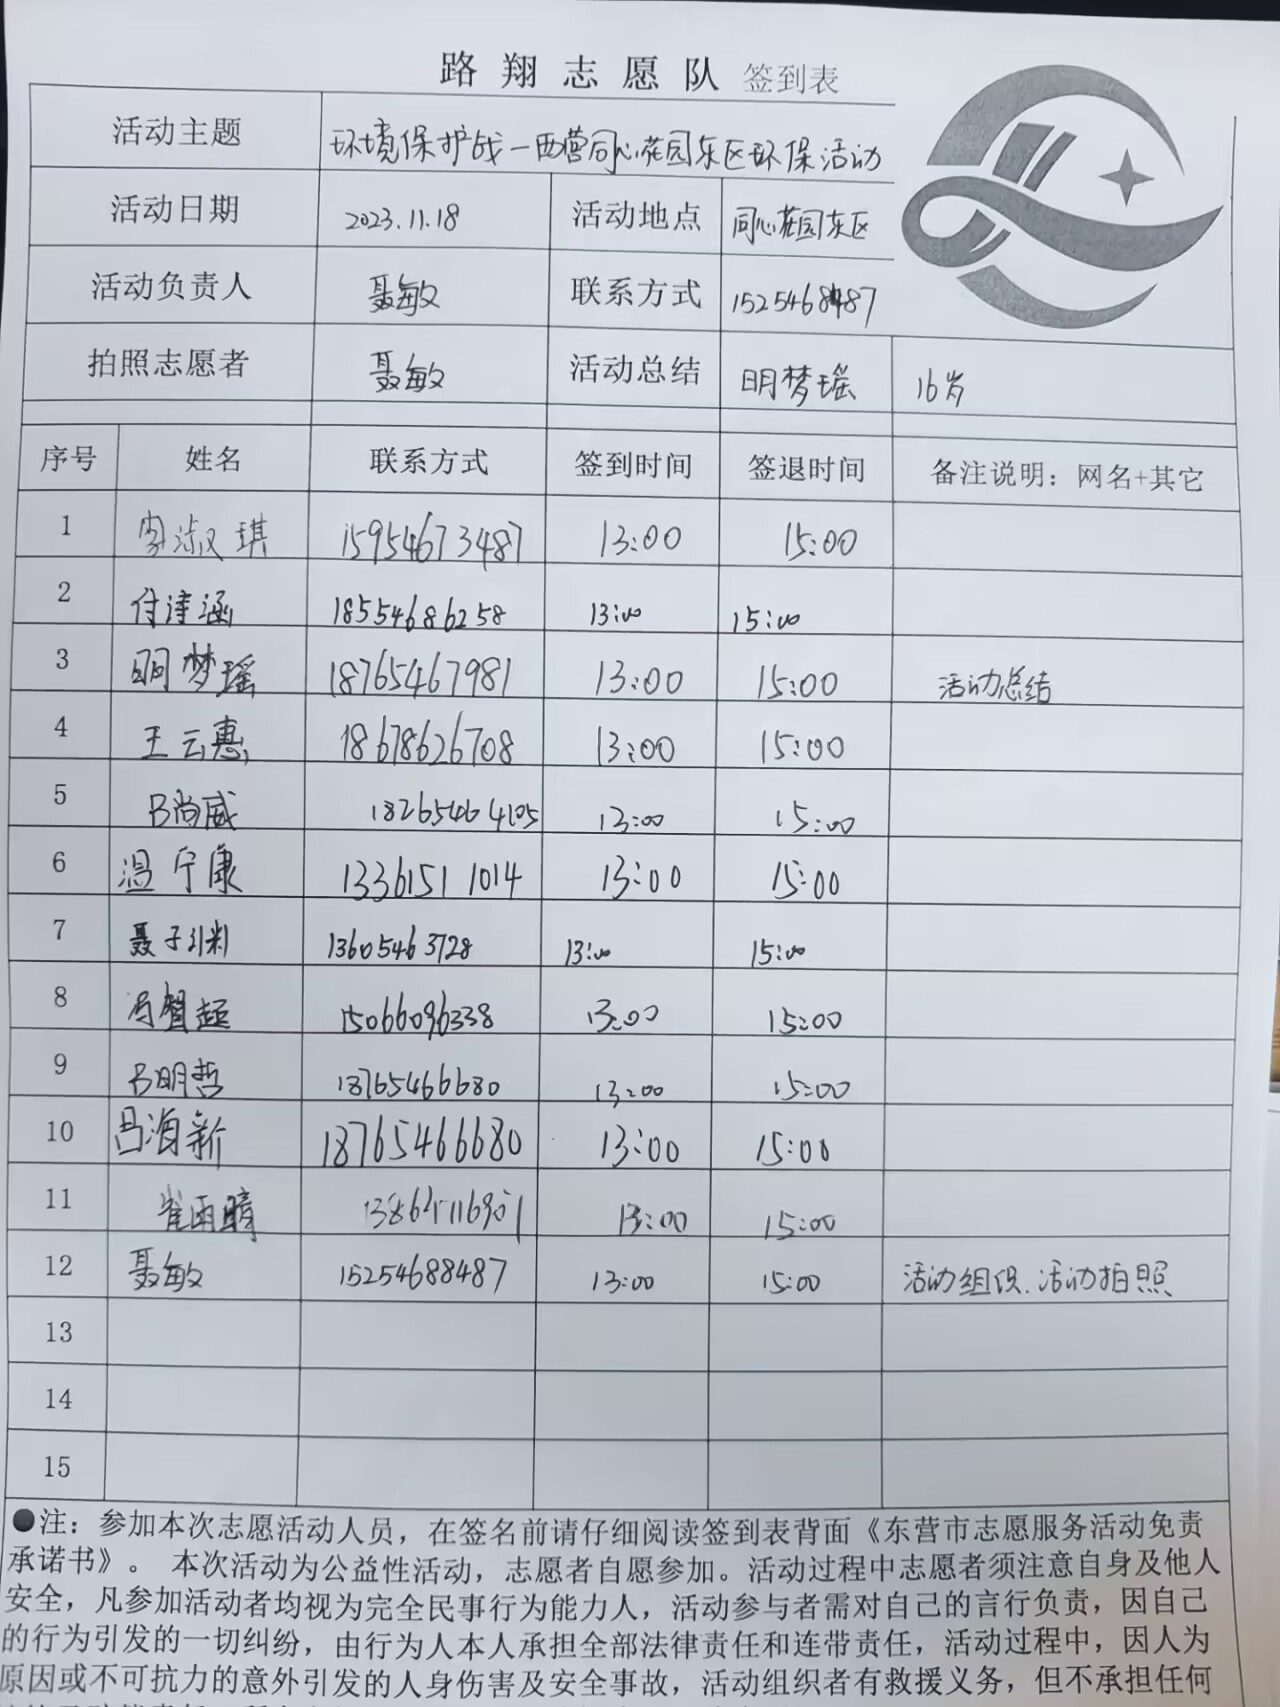 路翔志愿队 签到表
活动主题 环境保护战一西营同心花园东区环保活动
活动日期 2023.11.18 活动地点 同心花园东区
活动负责人 聂敏 联系方式
拍照志愿者 聂敏 活动总结 明梦瑶 16岁
序号 姓名 联系方式 签到时间 签退时间 备注说明：网名+其它
1 李淑琪 15954673487 13:00 15:00
2 付诗涵 18554686258 13:00 15:00
3 明梦瑶 18765467981 13:00 15:00 活动总结
4 王云惠 18678626708 13:00 15:00
5 尚威 13:00 15:00
6 温宁康 13361511014 13:00 15:00
7 聂子 13605463728 13:00 15:00
8 冯智超 15066096338 13:00 15:00
9 明哲 18765466680 13:00 15:00
10 吕海新 18765466680 13:00 15:00
11 崔雨晴 13:00 15:00
12 聂敏 15254688487 13:00 15:00 活动组织.活动拍照
13
14
15
●注：参加本次志愿活动人员，在签名前请仔细阅读签到表背面《东营市志愿服务活动免责
承诺书》。 本次活动为公益性活动，志愿者自愿参加。活动过程中志愿者须注意自身及他人
安全，凡参加活动者均视为完全民事行为能力人，活动参与者需对自己的言行负责，因自己
的行为引发的一切纠纷，由行为人本人承担全部法律责任和连带责任，活动过程中，因人为
原因或不可抗力的意外引发的人身伤害及安全事故，活动组织者有救援义务，但不承担任何